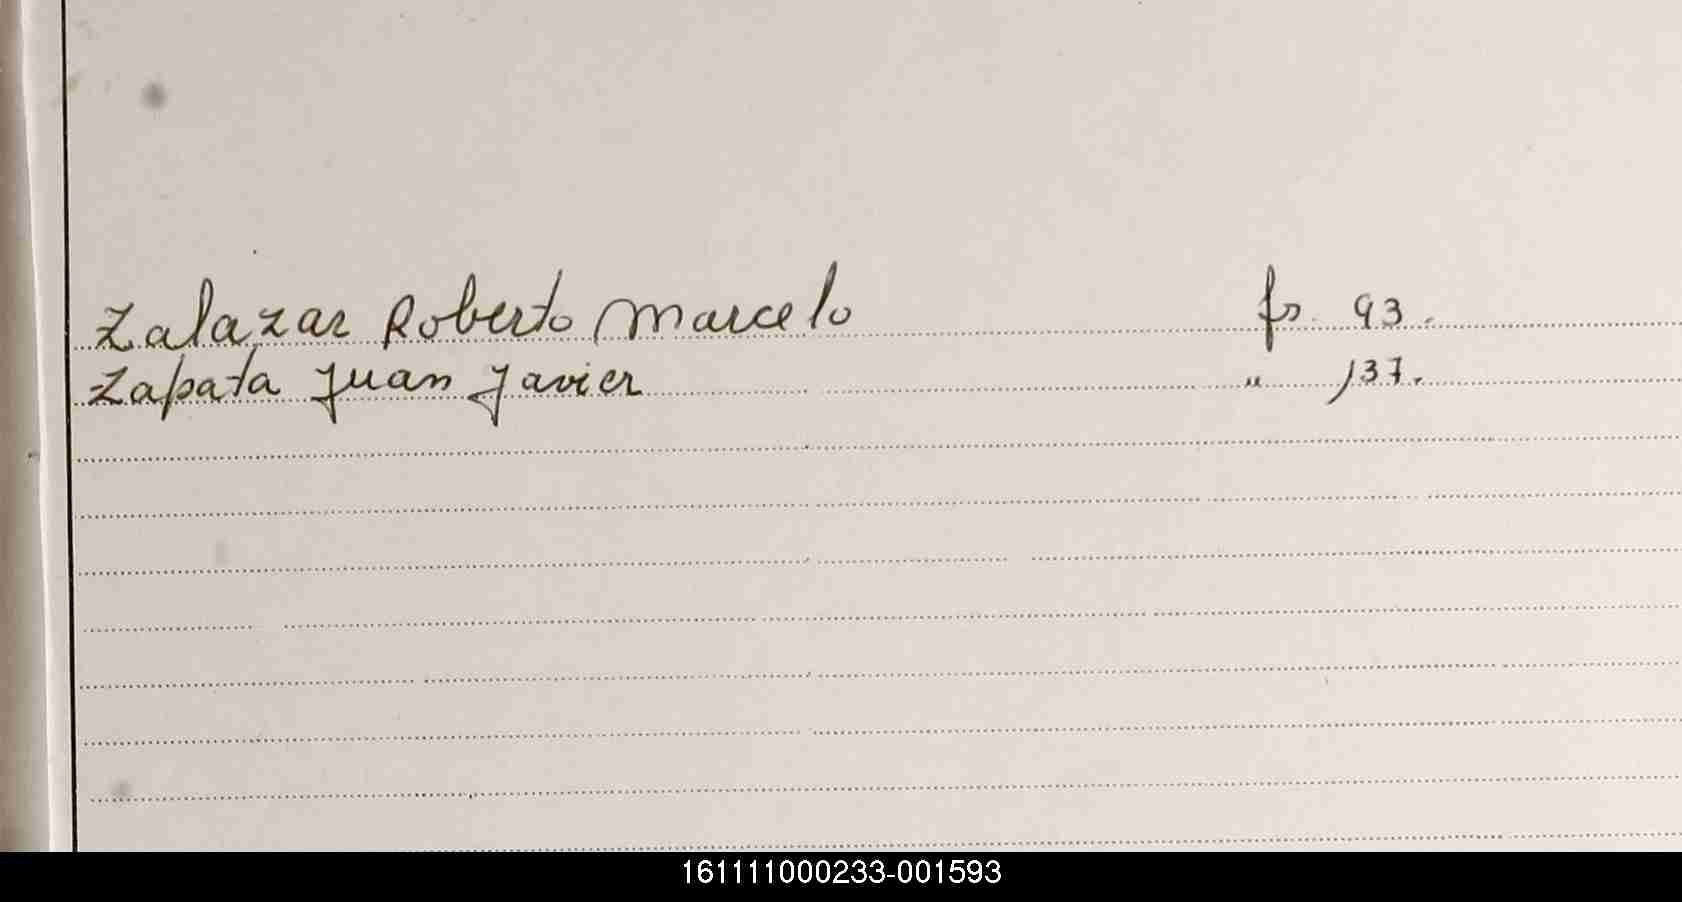 Zalazar Roberto Marcelo fs. 93.
Zapata Juan Javier " 137.
161111000233-001593